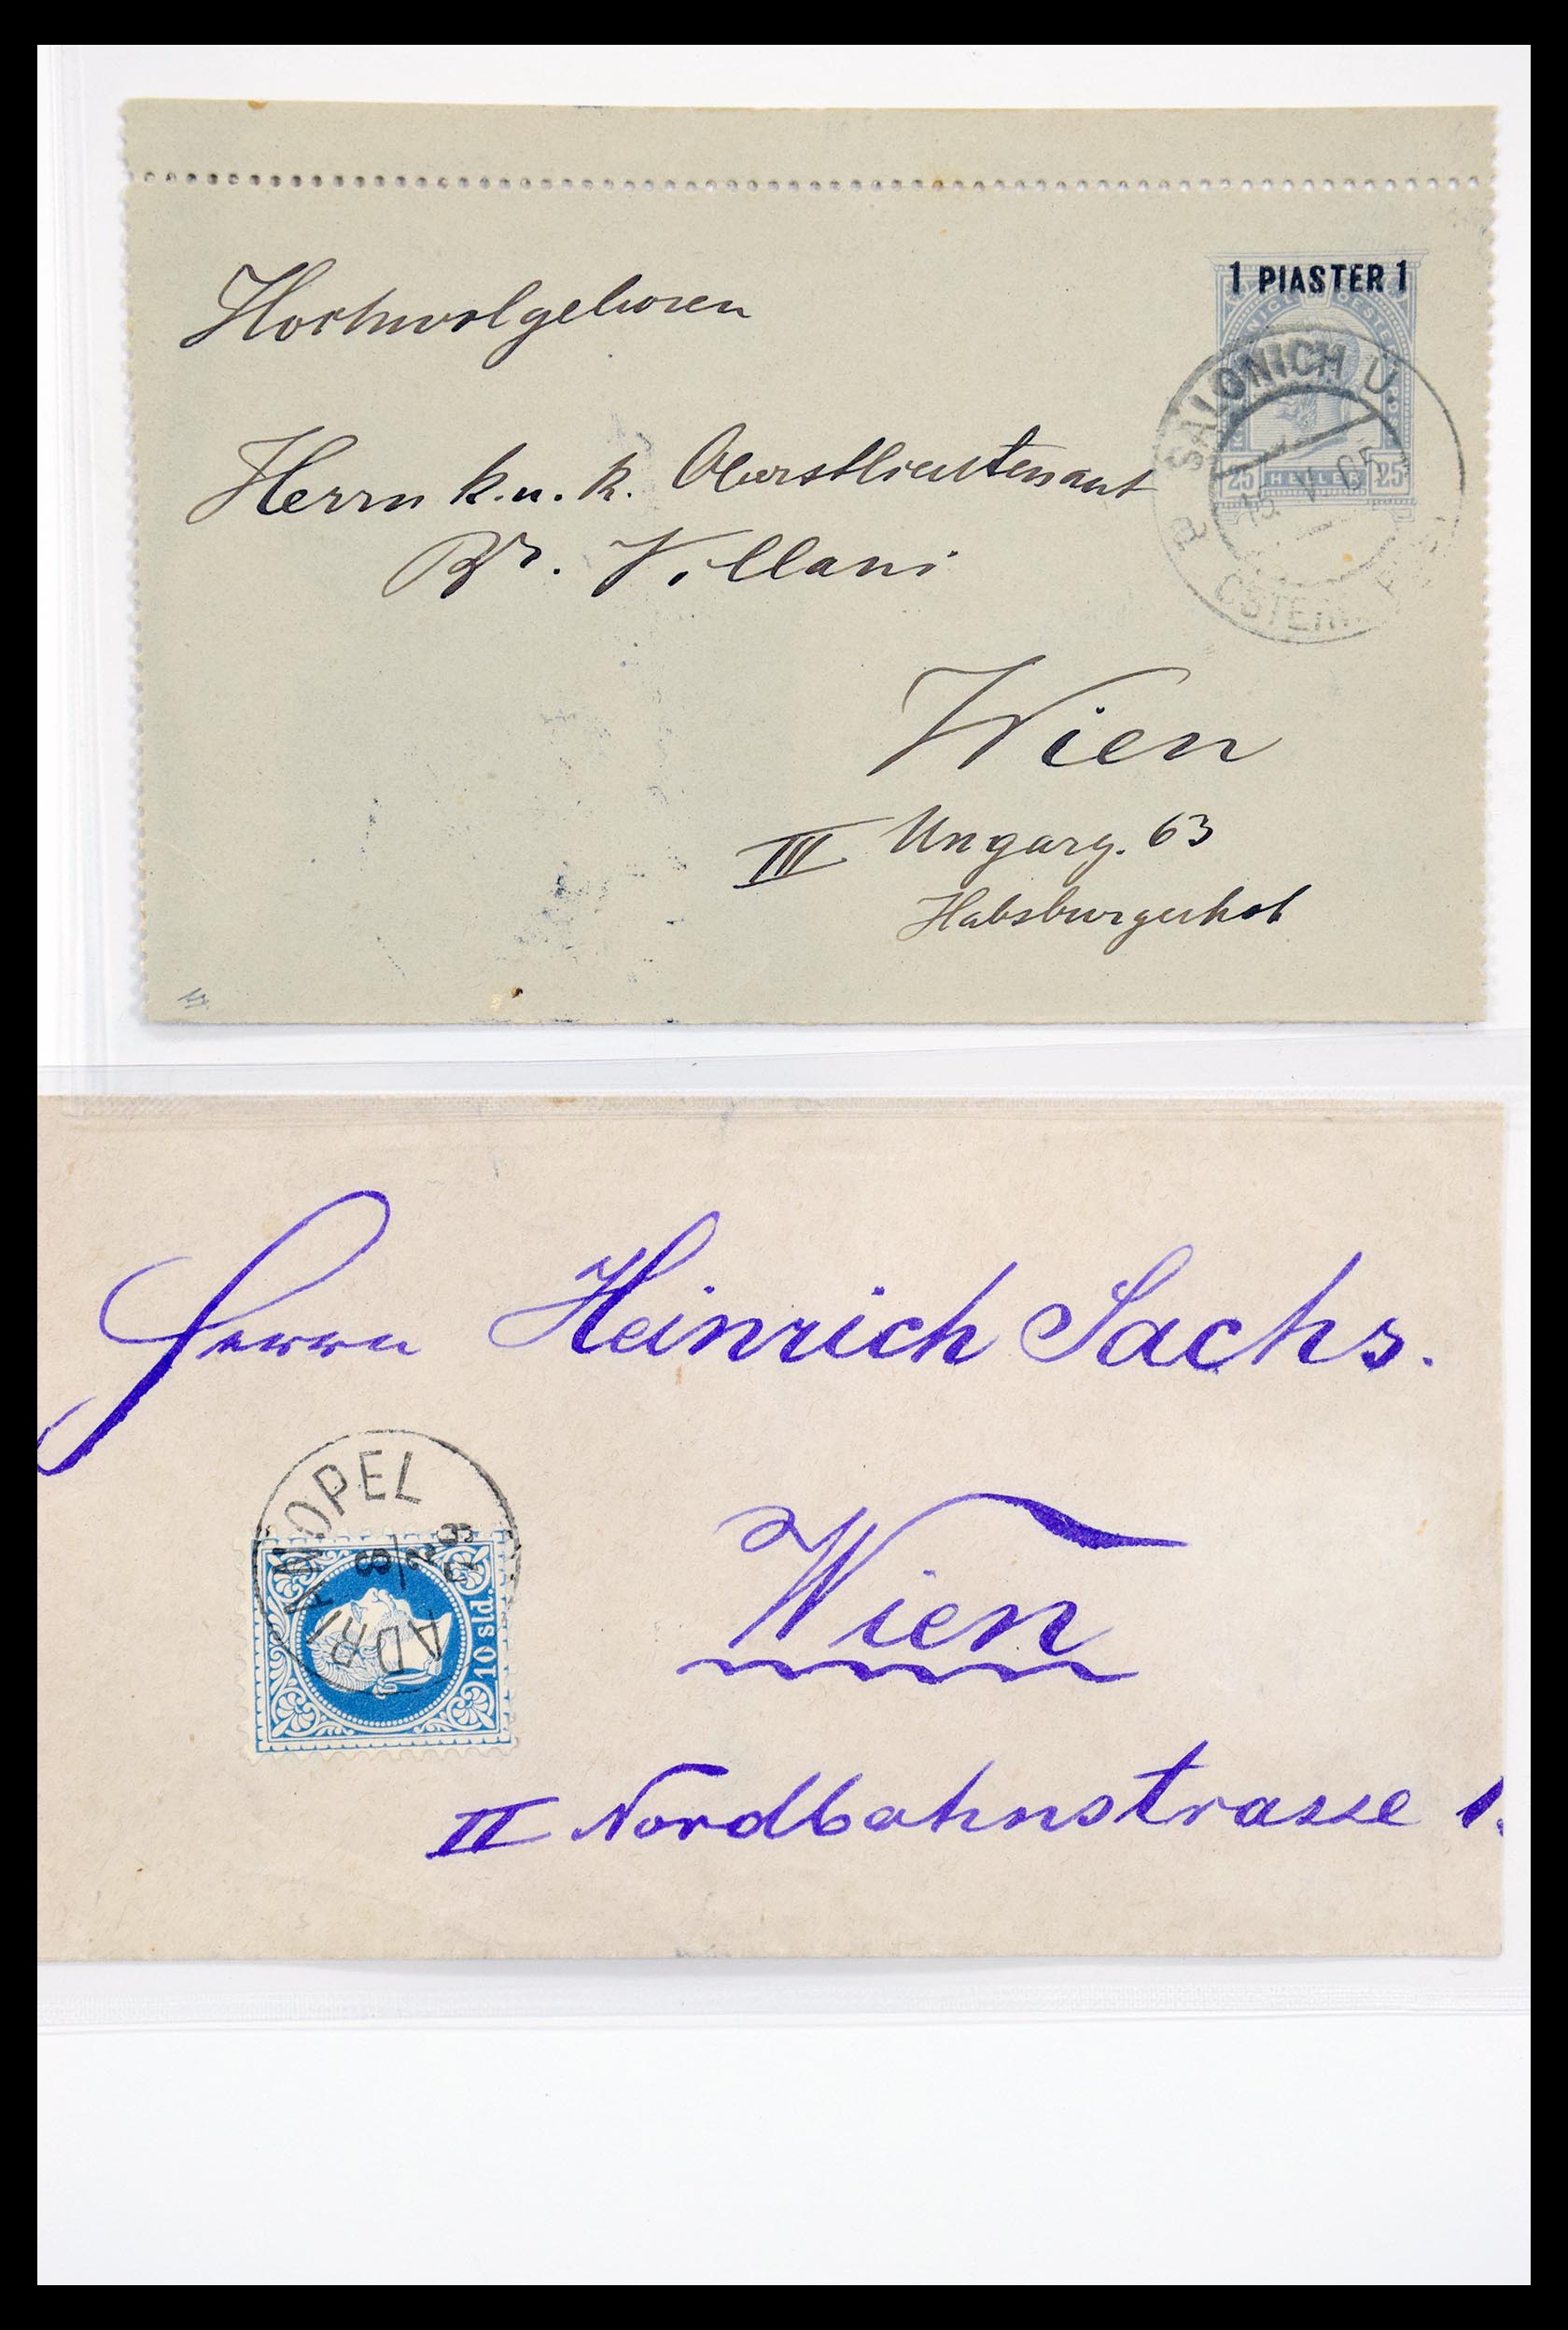 1 PIASTER 1
SALONICH
25 HELLER 25
Hochwolgeboren
Herrn k.u.k. Oberstlieutenant
Br. Villani
Wien
III Ungarg. 63
Habsburgerhof
Herrn Heinrich Sachs.
ADRIANOPEL
10 sld.
Wien
II Nordbahnstrasse 1.